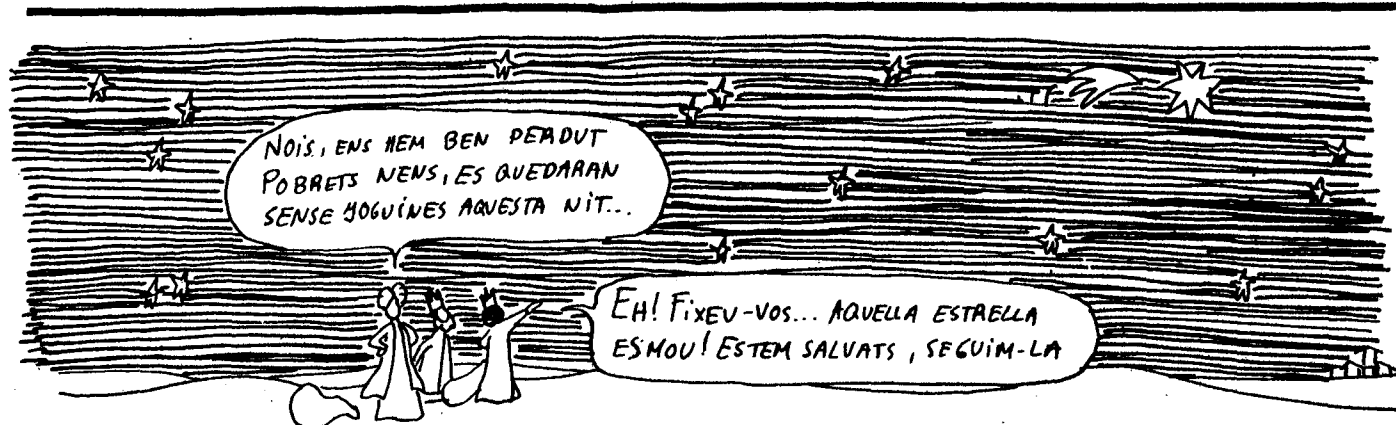 NOIS, ENS HEM BEN PERDUT
POBRETS NENS, ES QUEDARAN
SENSE JOGUINES AQUESTA NIT...
EH! FIXEU-VOS... AQUELLA ESTRELLA
ES MOU! ESTEM SALVATS, SEGUIM-LA